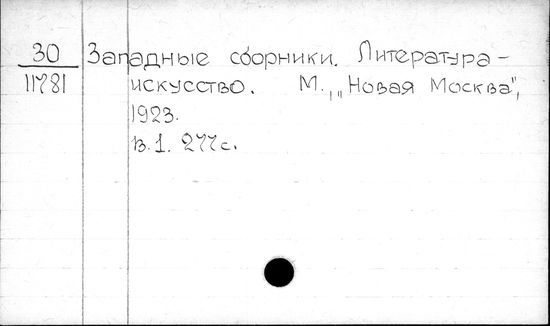 30 Западные сборники. Литература-
11781 искусство. М., „Новая Москва",
1923.
в.1. 277с.